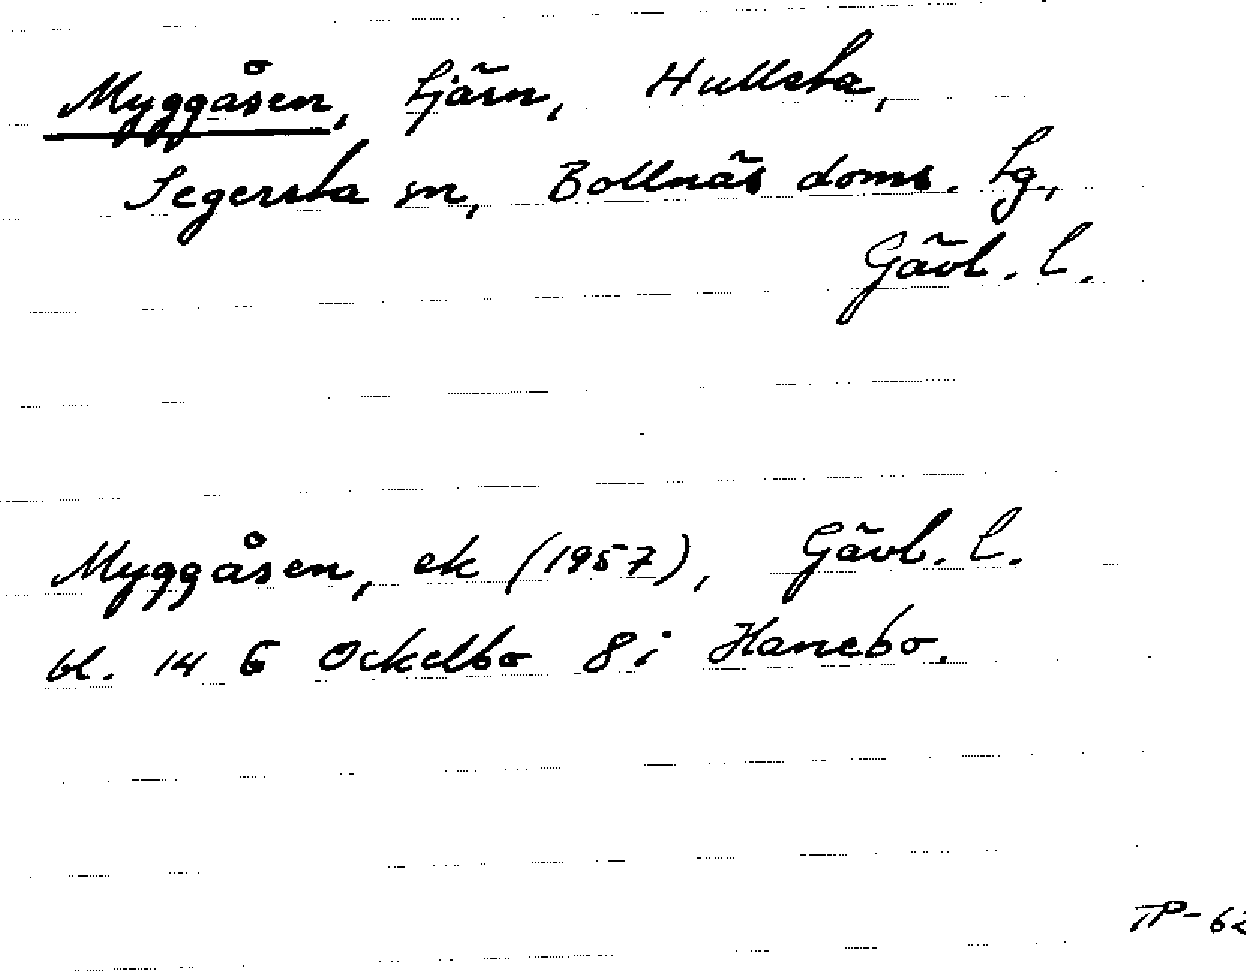 Myggåsen, tjärn, Hullsta,
Segersta sn, Bollnäs doms. tg.,
Gävl. l.
Myggåsen, ek (1957), Gävl. l.
bl. 14 G Ockelbo 8 i Hanebo.
TP-62